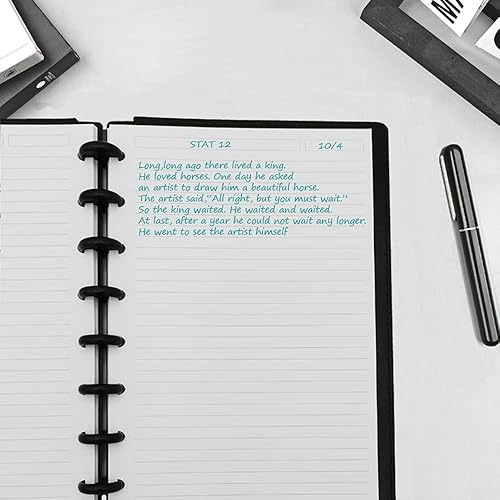 STAT 12
10/4
Long,long ago there lived a king.
He loved horses. One day he asked
an artist to draw him a beautiful horse.
The artist said,"All right, but you must wait."
So the king waited. He waited and waited.
At last, after a year he could not wait any longer.
He went to see the artist himself